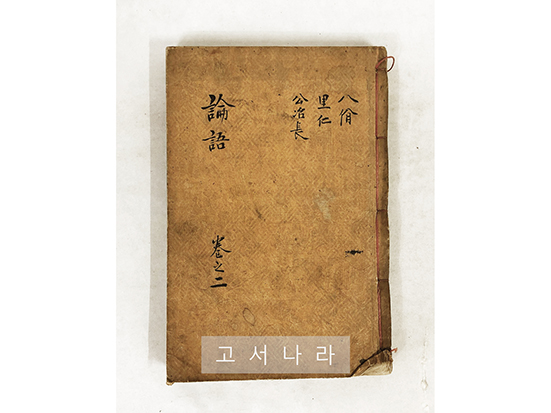 八佾
里仁
公冶長
論語
卷之二
고서나라